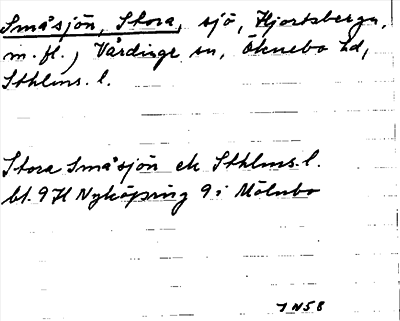 Småsjön, Stora, sjö, Hjortsberga,
m. fl., Vårdinge sn, Öknebo hd,
Sthlms. l.
Stora Småsjön ek Sthlms. l.
bl. 9 H Nyköping 9 i Mölnbo